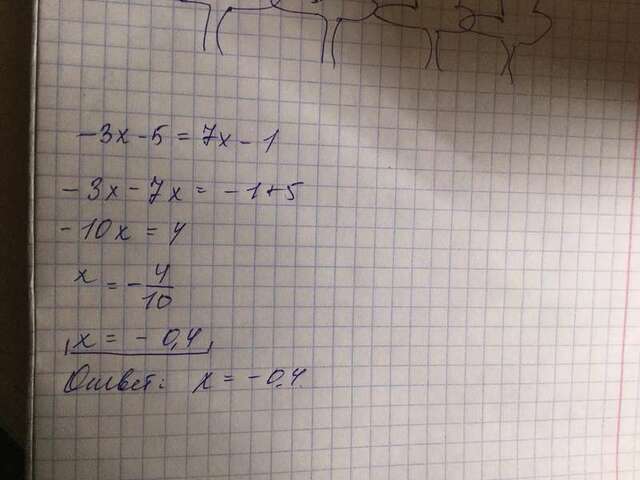 -3x-5=7x-1
-3x-7x=-1+5
-10x=4
x=-4/10
x=-0,4
Ответ: x=-0,4.